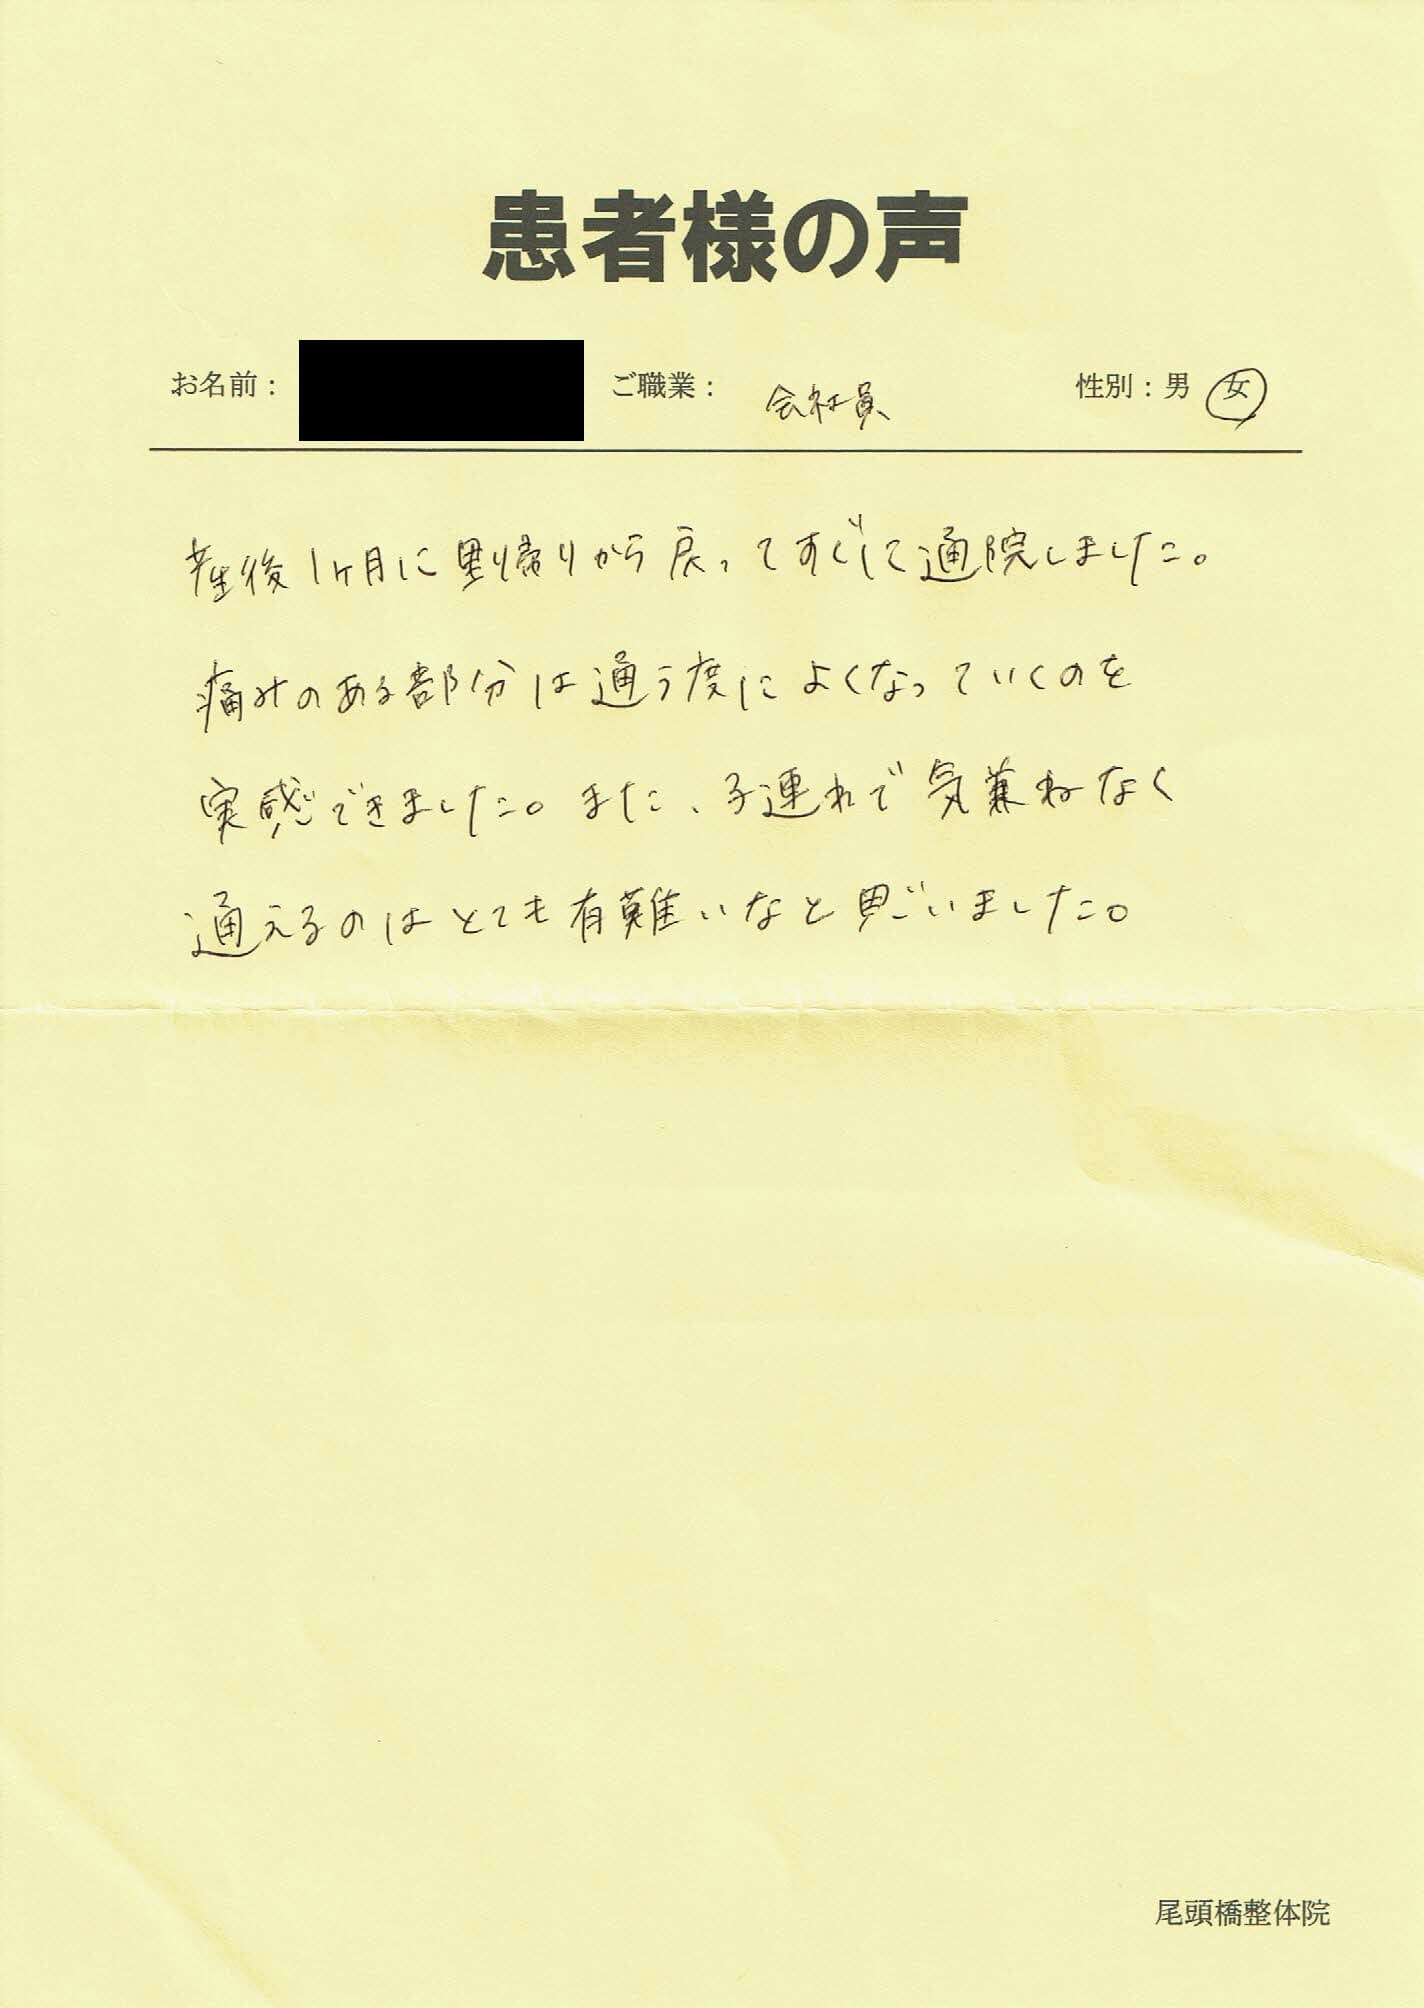 患者様の声
お名前： ご職業： 会社員 性別：男 女
産後1ヶ月に里帰りから戻ってすぐに通院しました。
痛みのある部分は通う度によくなっていくのを
実感できました。また、子連れで気兼ねなく
通えるのはとても有難いなと思いました。
尾頭橋整体院